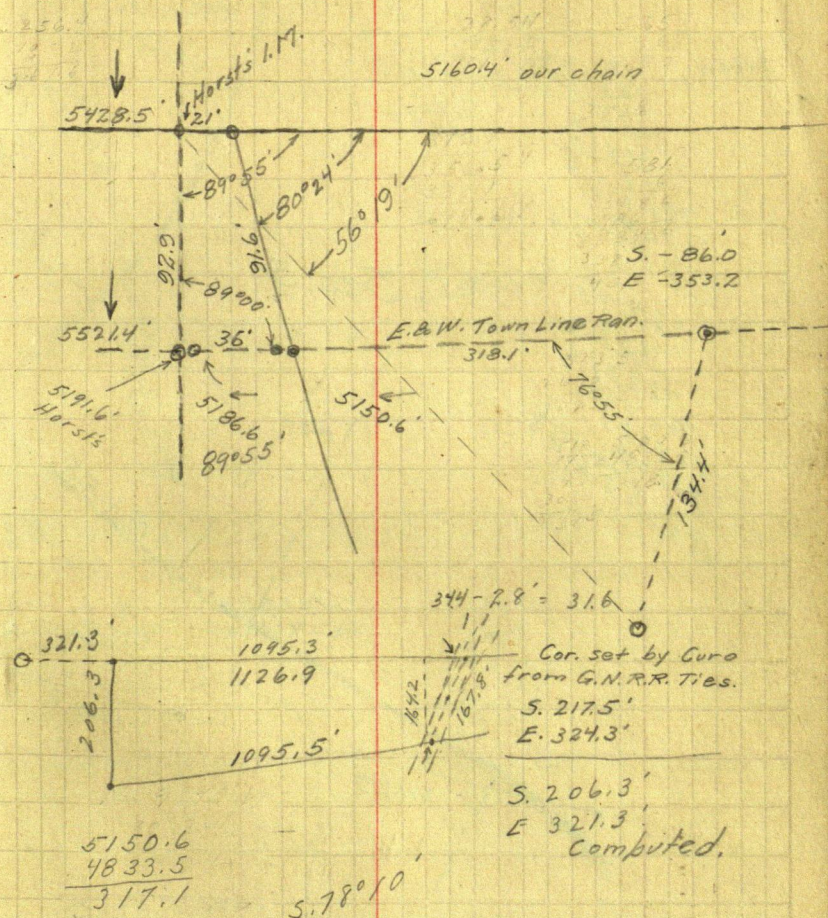 Horsts I.M.
5160.4' our chain
5428.5'
21'
89°55'
80°24'
56° 19'
92.9'
91.6'
S. - 86.0'
E - 353.2
89°00'
5521.4'
36'
E. & W. Town Line Ran.
318.1'
5191.6'
Horsts
5186.6
89°55'
5150.6'
76°55'
134.4'
34.4 - 2.8' = 31.6
321.3'
1095.3'
1126.9
Cor. set by Curo
from G.N.R.R. Ties.
206.3
164.2
167.8'
S. 217.5'
E. 324.3'
1095.5'
S. 206.3'
E 321.3'
Computed.
5150.6
4833.5
317.1
S. 78°10'